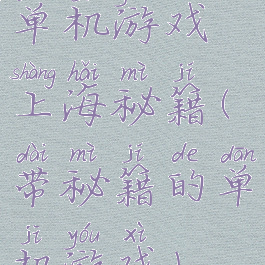 单机游戏
shàng hǎi mì jí
上海秘籍(
dài mì jí de dān
带秘籍的单
jī yóu xì
机游戏)